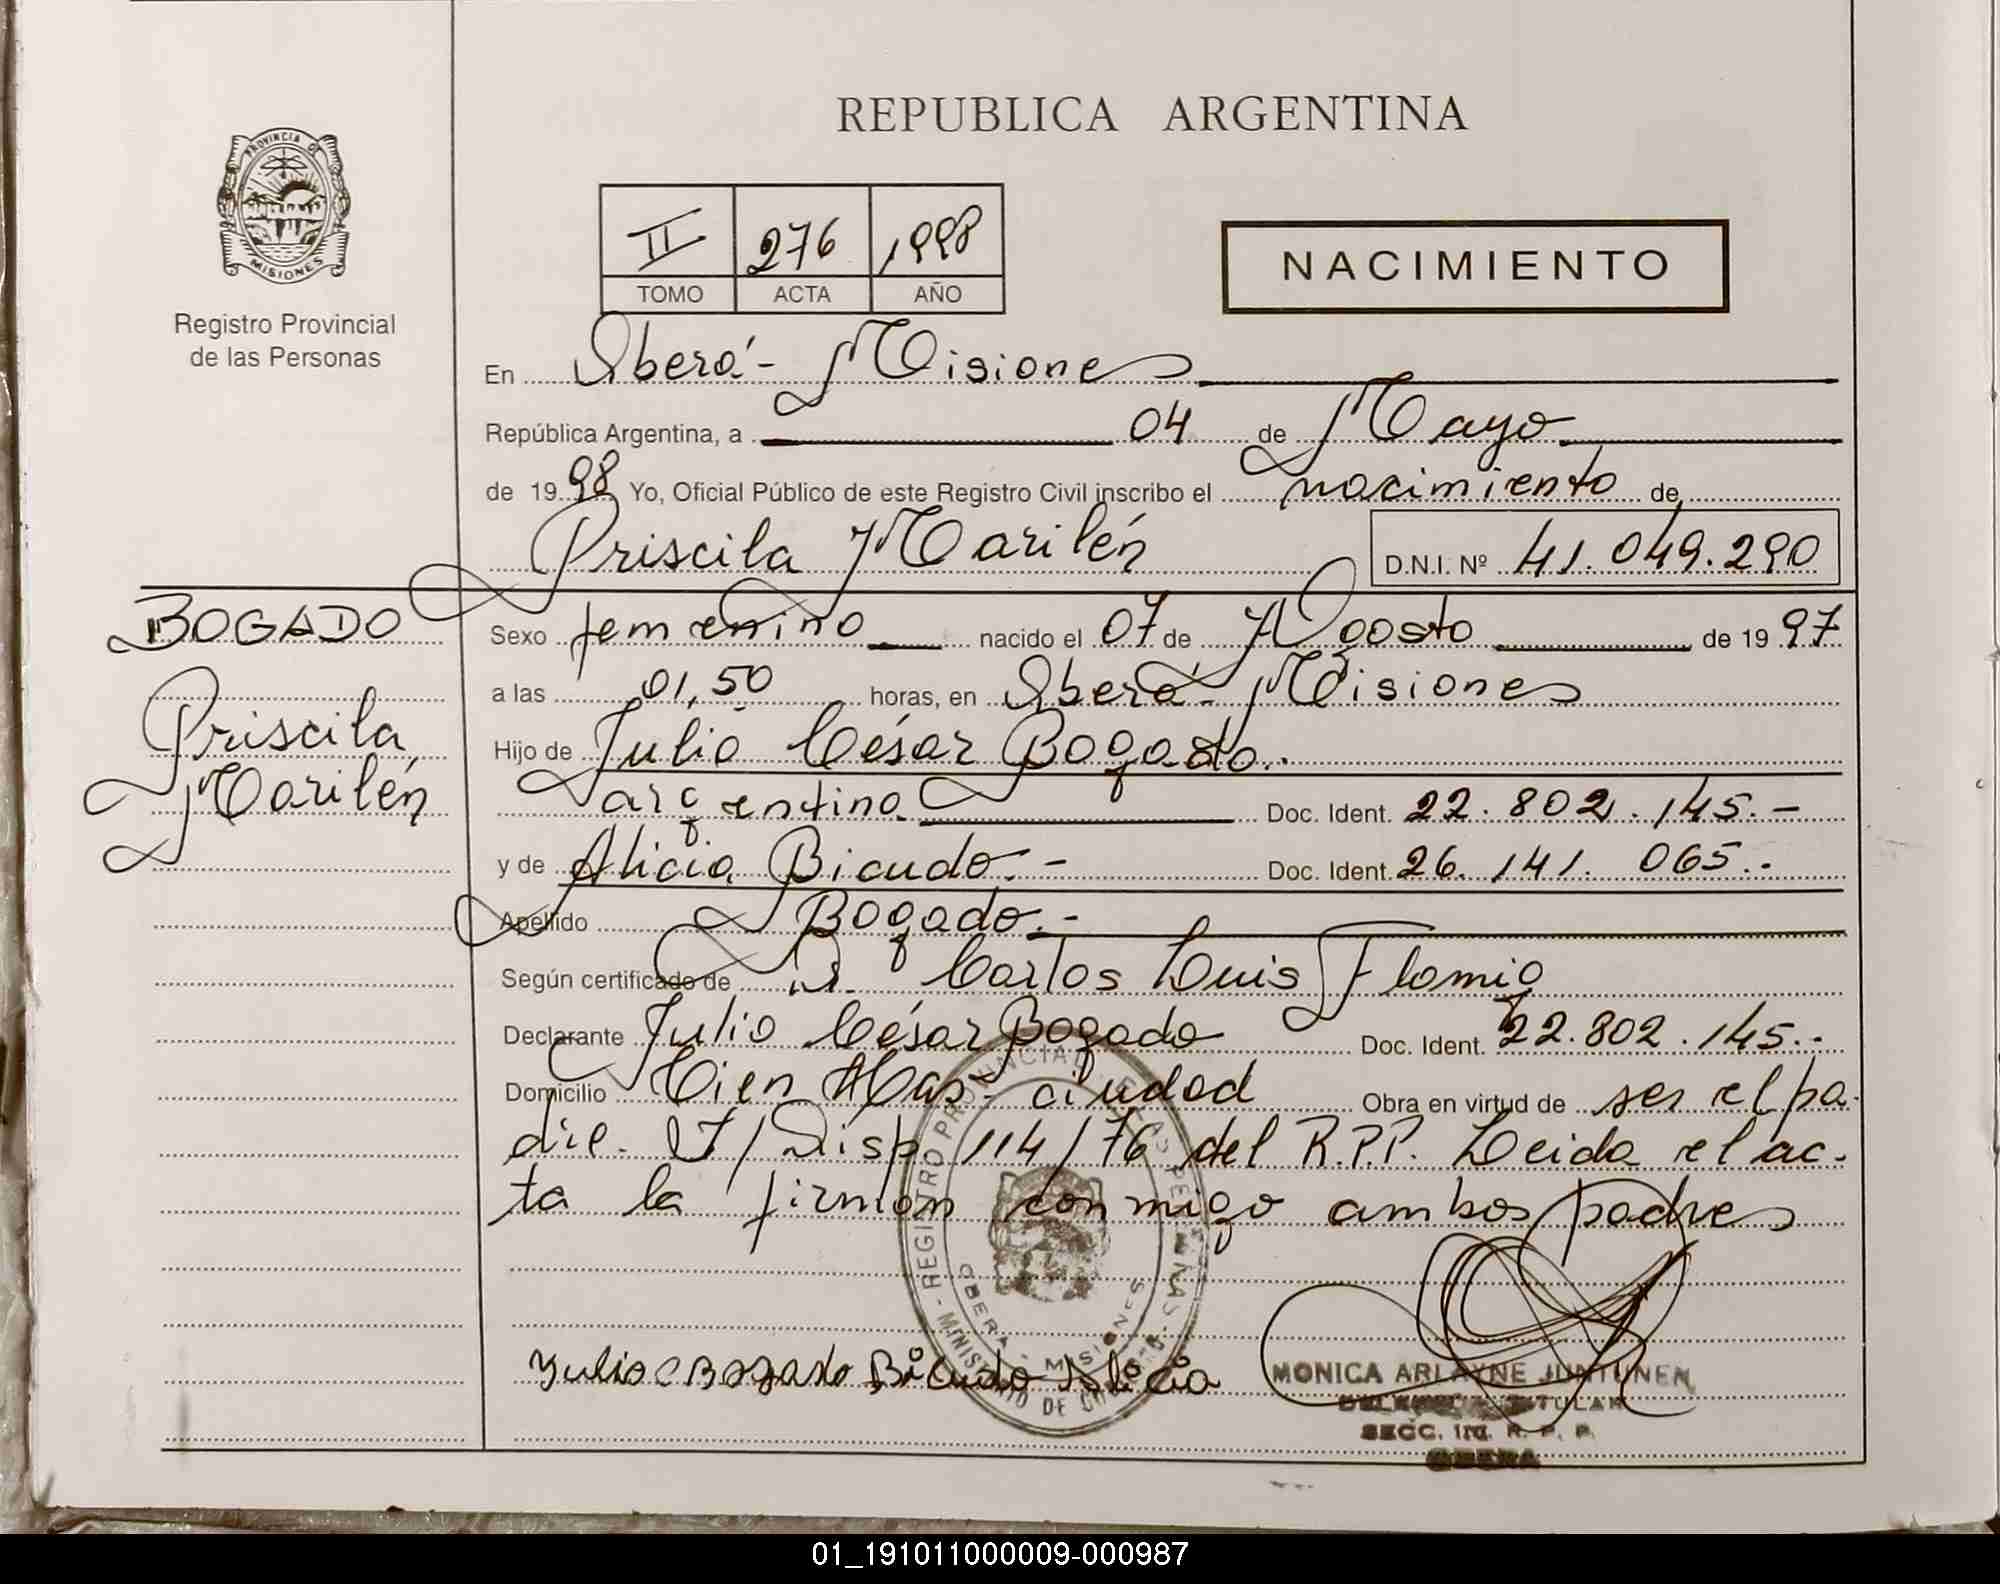 REPUBLICA ARGENTINA
PROVINCIA DE
MISIONES
Registro Provincial
de las Personas
II 276 1998
TOMO ACTA AÑO
NACIMIENTO
En Oberá - Misiones
República Argentina, a 04 de Mayo
de 1998 Yo, Oficial Público de este Registro Civil inscribo el nacimiento de
Priscila Marilén D.N.I. Nº 41.049.290
BOGADO
Priscila
Marilén
Sexo femenino nacido el 07 de Agosto de 1997
a las 01,50 horas, en Oberá - Misiones
Hijo de Julio César Bogado.-
argentino Doc. Ident. 22.802.145.-
y de Alicia Bicudo.- Doc. Ident. 26.141.065.-
Apellido Bogado.-
Según certificado de Dr. Carlos Luis Flomig
Declarante Julio César Bogado Doc. Ident. 22.802.145.-
Domicilio Cien Has - ciudad Obra en virtud de ser el pa-
dre. T/Disp 114/76 del R.P.P. Leida el ac-
ta la firman conmigo ambos padres
Julio C Bogado Bicudo Alicia
REGISTRO PROVINCIAL DE LAS PERSONAS - MINISTERIO DE GOBIERNO
OBERA - MISIONES
MONICA ARLAYNE JUNTUNEN
DELEGADA TITULAR
SECC. R. P. P.
OBERA
01_191011000009-000987